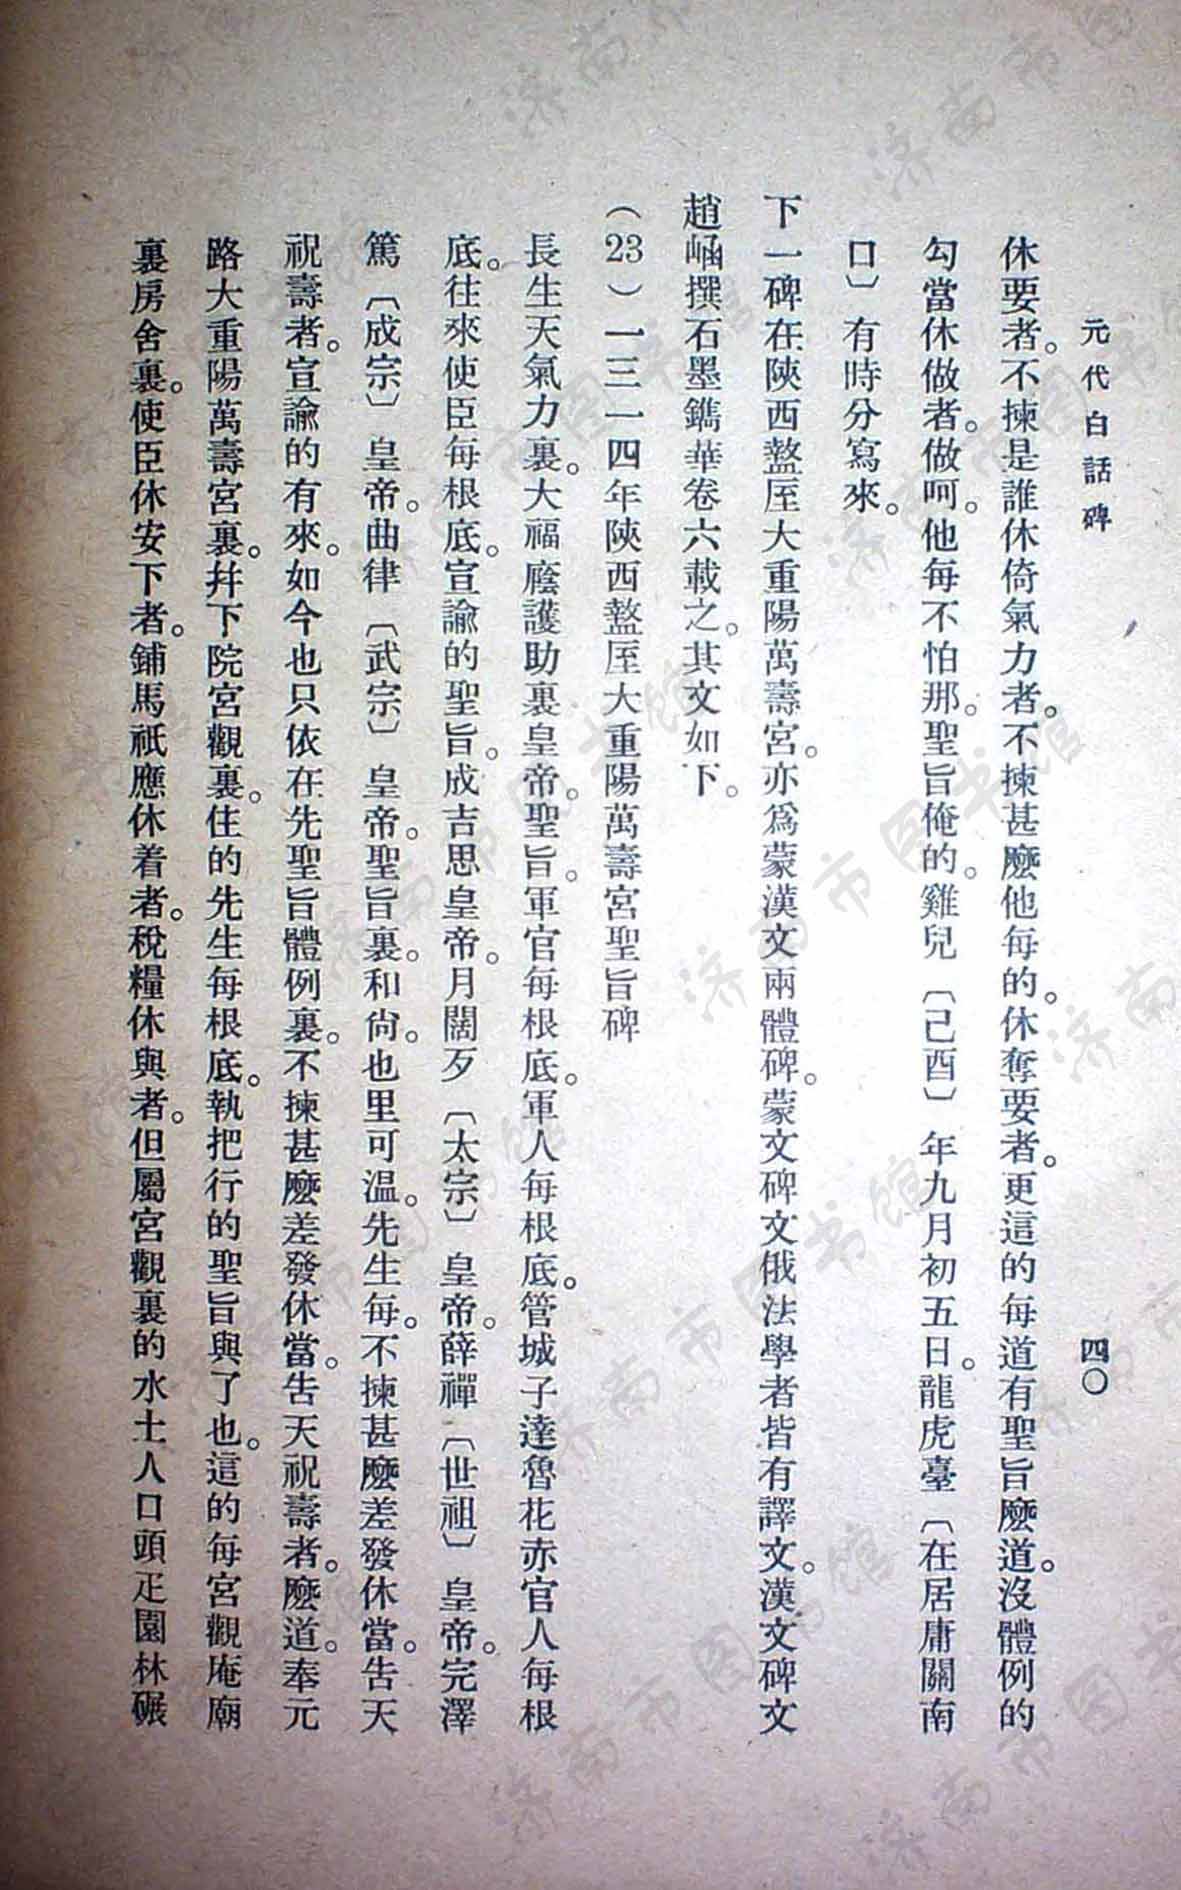 元代白話碑
四〇
休要者。不揀是誰休倚氣力者。不揀甚麼他每的。休奪要者。更這的每道有聖旨麼道。沒體例的
勾當休做者。做呵。他每不怕那。聖旨俺的。雞兒〔己酉〕年九月初五日。龍虎臺〔在居庸關南
口〕有時分寫來。
下一碑在陝西盩厔大重陽萬壽宮。亦爲蒙漢文兩體碑。蒙文碑文俄法學者皆有譯文。漢文碑文
趙崡撰石墨鐫華卷六載之。其文如下。
（23）一三一四年陝西盩厔大重陽萬壽宮聖旨碑
長生天氣力裏。大福廕護助裏皇帝。聖旨。軍官每根底。軍人每根底。管城子達魯花赤官人每根
底。往來使臣每根底。宣諭的聖旨。成吉思皇帝。月闊歹〔太宗〕皇帝。薛禪〔世祖〕皇帝。完澤
篤〔成宗〕皇帝。曲律〔武宗〕皇帝。聖旨裏。和尙。也里可溫。先生每。不揀甚麼差發休當。告天
祝壽者。宣諭的有來。如今也只依在先聖旨體例裏。不揀甚麼差發休當。告天祝壽者。麼道。奉元
路大重陽萬壽宮裏。幷下院宮觀裏。住的先生每根底。執把行的聖旨與了也。這的每宮觀庵廟
裏房舍裏。使臣休安下者。鋪馬祇應休着者。稅糧休與者。但屬宮觀裏的水土人口頭疋園林碾
济南市图书馆